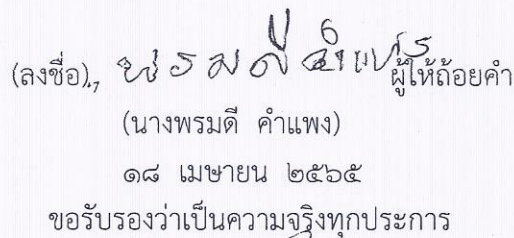 (ลงชื่อ) พรมดี คำแพง ผู้ให้ถ้อยคำ
(นางพรมดี คำแพง)
๑๘ เมษายน ๒๕๖๕
ขอรับรองว่าเป็นความจริงทุกประการ